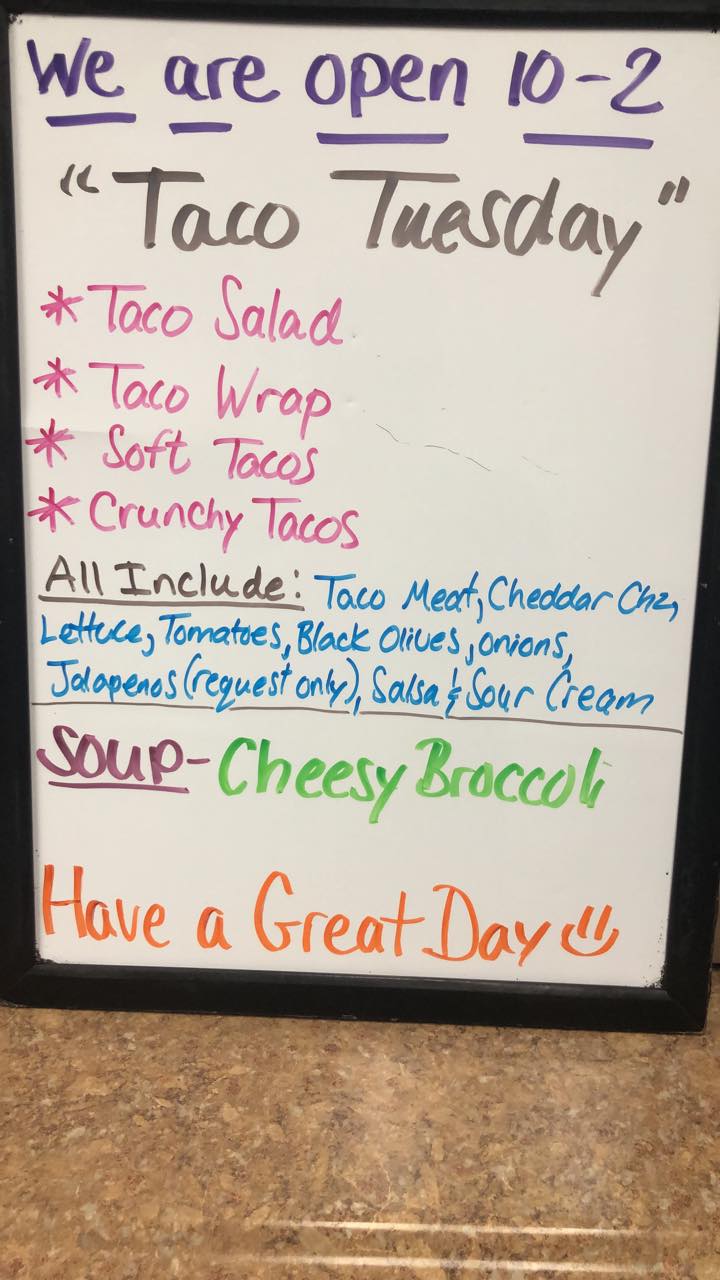 We are open 10-2
"Taco Tuesday"
* Taco Salad
* Taco Wrap
* Soft Tacos
* Crunchy Tacos
All Include: Taco Meat, Cheddar Chz,
Lettuce, Tomatoes, Black Olives, onions,
Jalapenos (request only), Salsa & Sour Cream
SOUP- Cheesy Broccoli
Have a Great Day